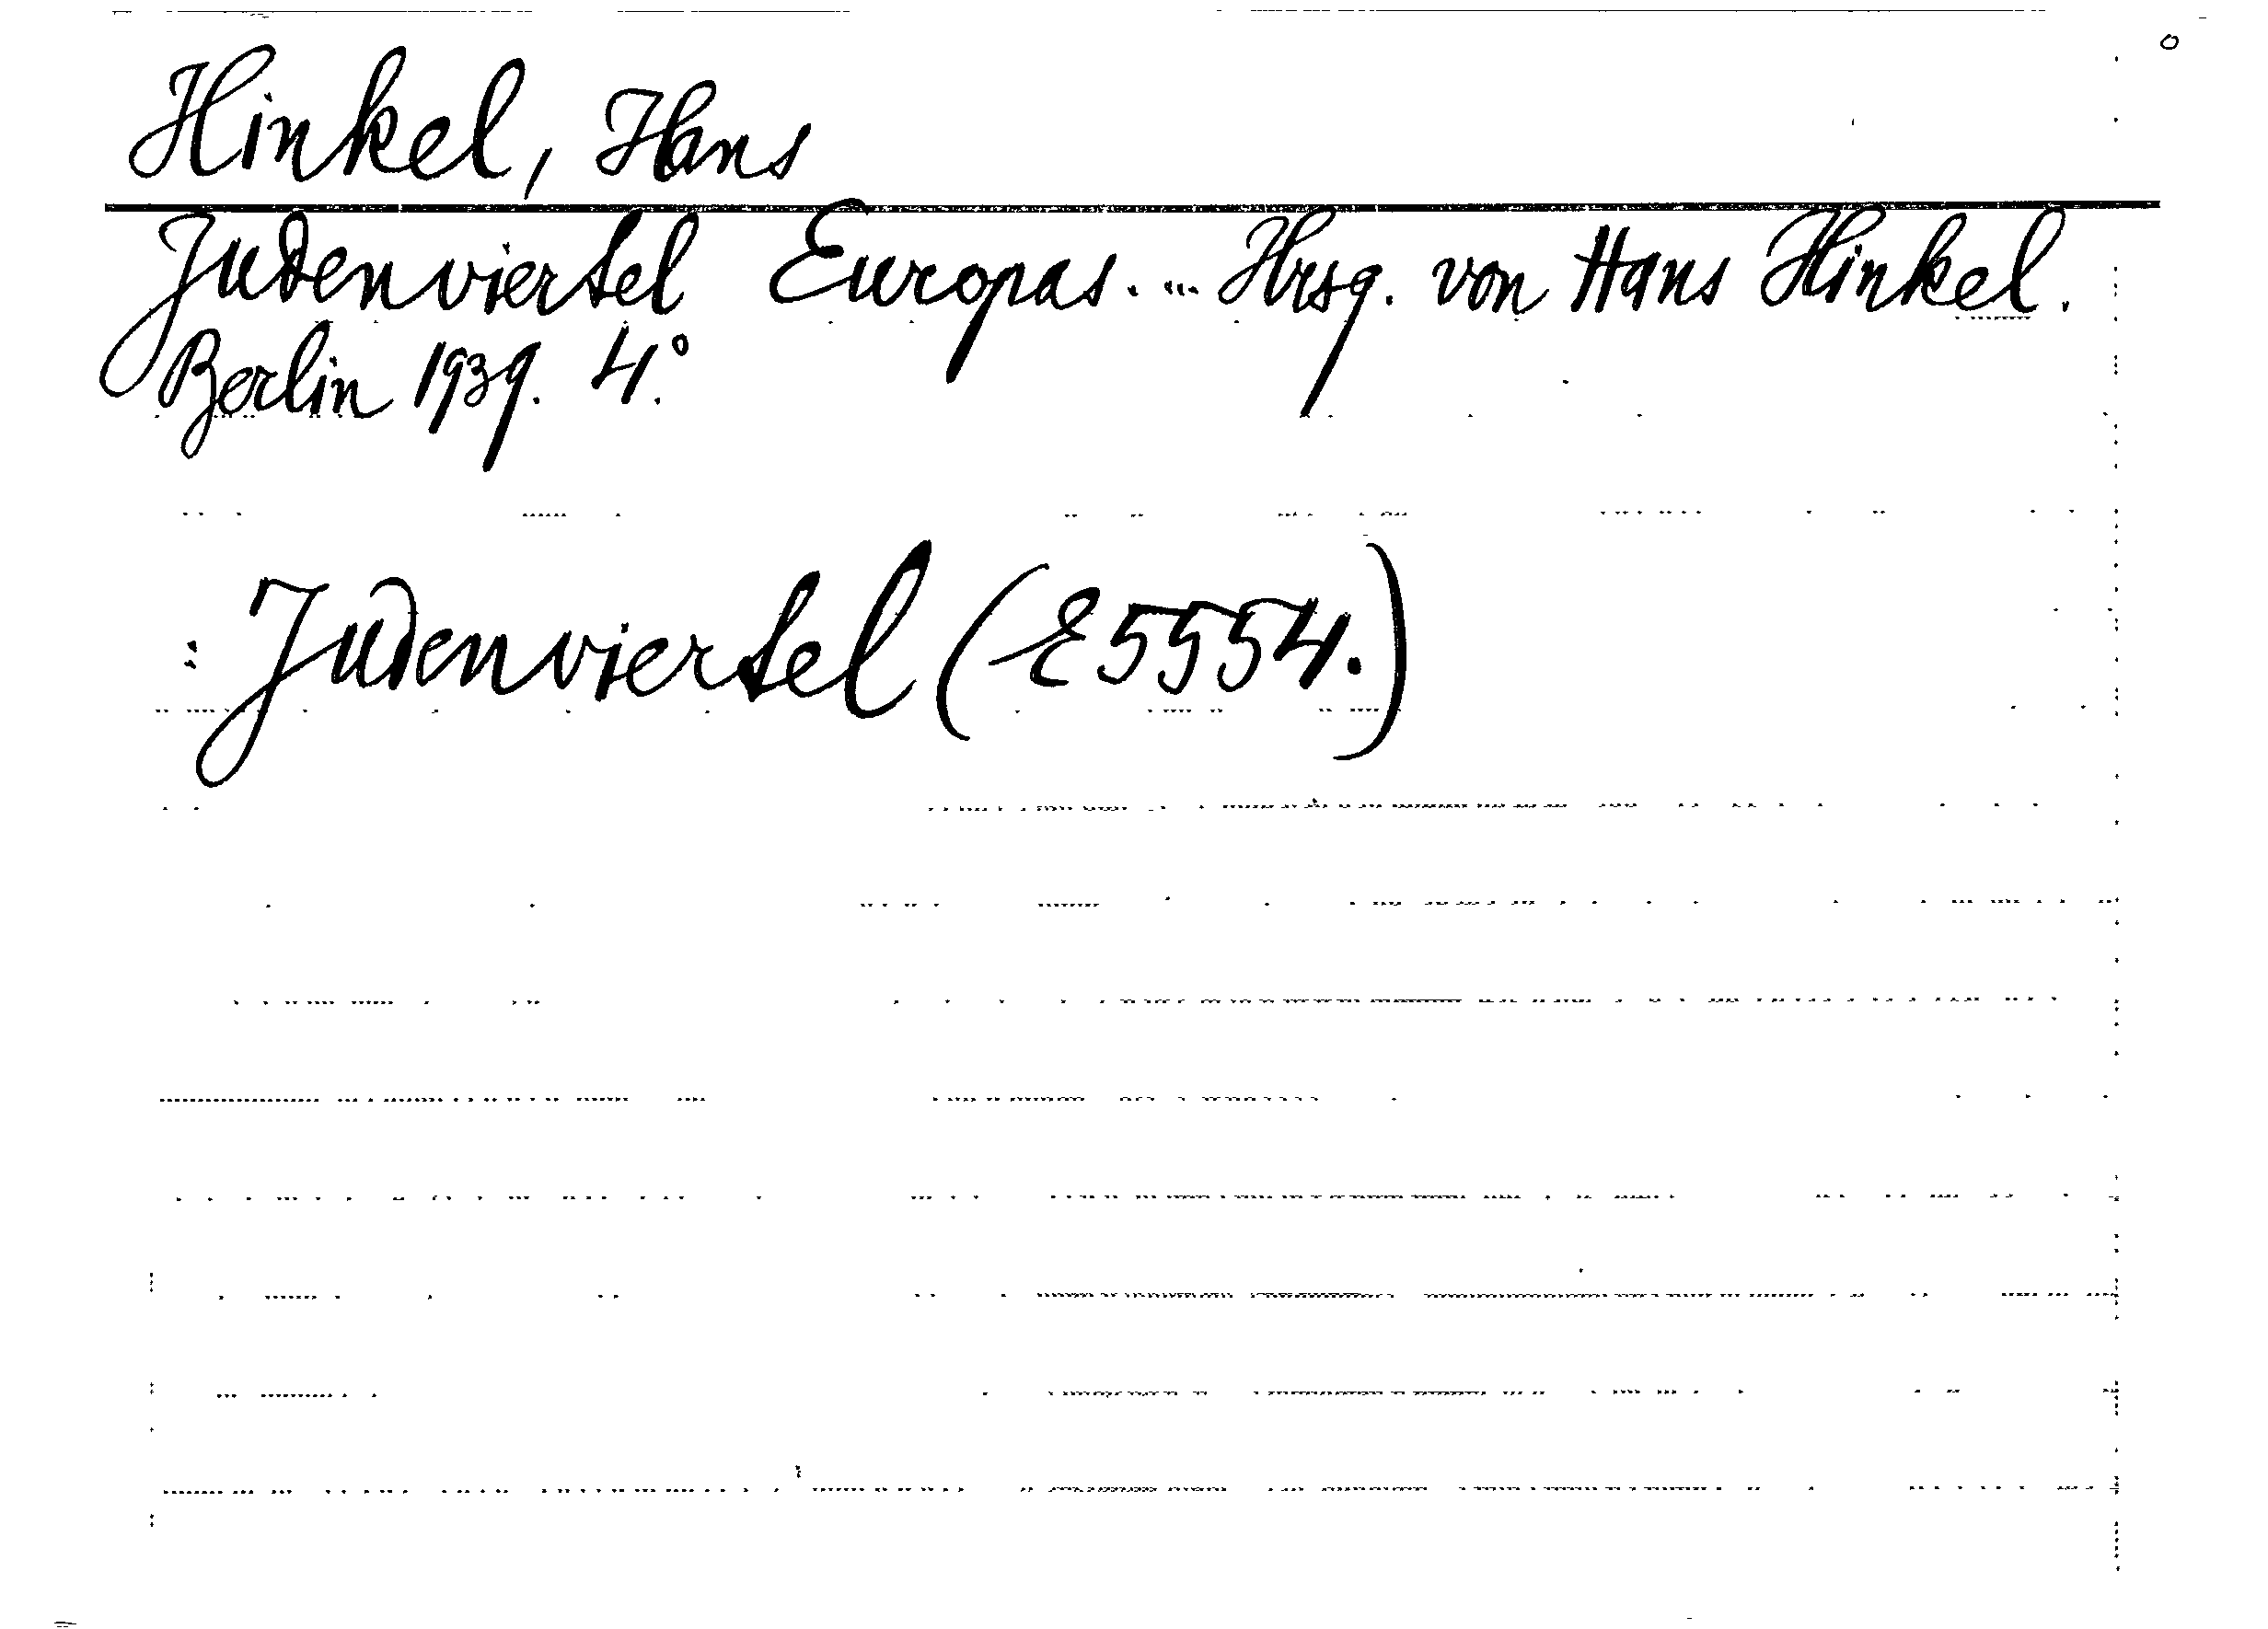 Hinkel, Hans
Judenviertel Europas. ... Hrsg. von Hans Hinkel.
Berlin 1939. 4°.
: Judenviertel (E 5554.)